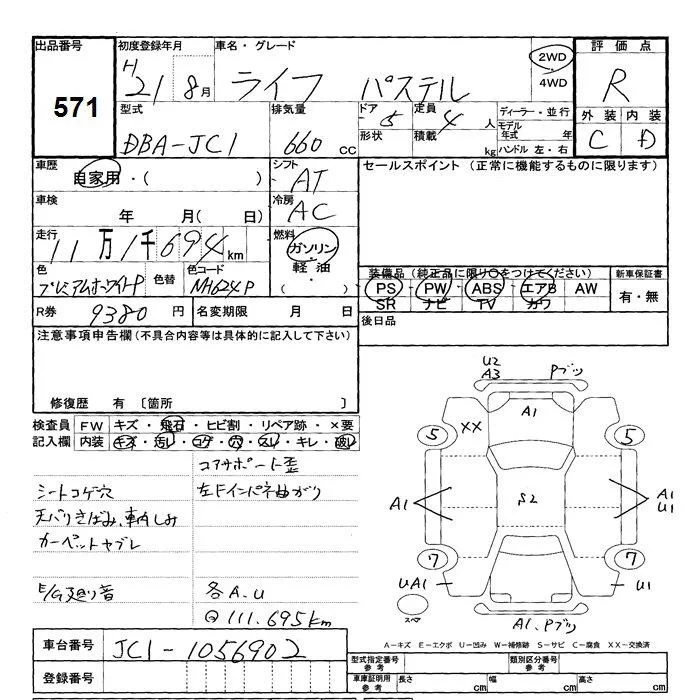 出品番号 初度登録年月 車名・グレード 評価点
571 H 21 8月 ライフ パステル 2WD 4WD R
型式 排気量 ドア 定員 ディーラー・並行 外装 内装
DBA-JC1 660cc 5 4人 モデル年式 年 C D
形状 積載 kg ハンドル 左・右
車歴 自家用・( ) シフト AT セールスポイント (正常に機能するものに限ります)
車検 年 月( 日) 冷房 AC
走行 11万1千694km 燃料 ガソリン・軽油・( )
色 プレミアムホワイトP 色替 色コード NH624P
装備品 (純正品に限り○をつけてください) 新車保証書
PS PW ABS エアB AW 有・無
SR ナビ TV カワ
R券 9380円 名変期限 月 日 後日品
注意事項申告欄 (不具合内容等は具体的に記入して下さい)
修復歴 有 〔箇所 〕
検査員記入欄 FW キズ・飛石・ヒビ割・リペア跡・×要
内装 キズ・汚レ・コゲ・穴・スレ・キレ・破レ
コアサポート歪
シートコゲ穴 左Fインパネ曲がり
天バリきばみ、車内しみ
カーペットヤブレ
E/G廻り音 各A.U
111.695km
U2
A3 Pブツ
A1
XX
5 5
A1 S2 A1
U1
7 7
UA1 U1
スペア A1.Pブツ
A−キズ E−エクボ U−凹み W−補修跡 S−サビ C−腐食 XX−交換済
車台番号 JC1-1056902
登録番号
型式指定番号参考 類別区分番号参考
車庫証明用参考 長さ cm 幅 cm 高さ cm